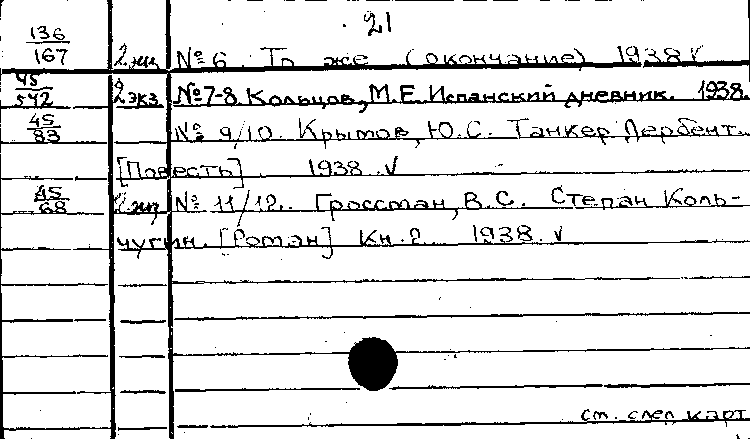 21
136/167 2 экз № 6. То же (окончание) 1938 ✓
45/542 2 экз № 7-8. Кольцов, М.Е. Испанский дневник. 1938.
45/83 № 9/10. Крымов, Ю.С. Танкер Дербент.
[Повесть] 1938. ✓
45/68 2 экз № 11/12. Гроссман, В.С. Степан Коль-
чугин. [Роман] Кн. 2. 1938. ✓
см. след. карт